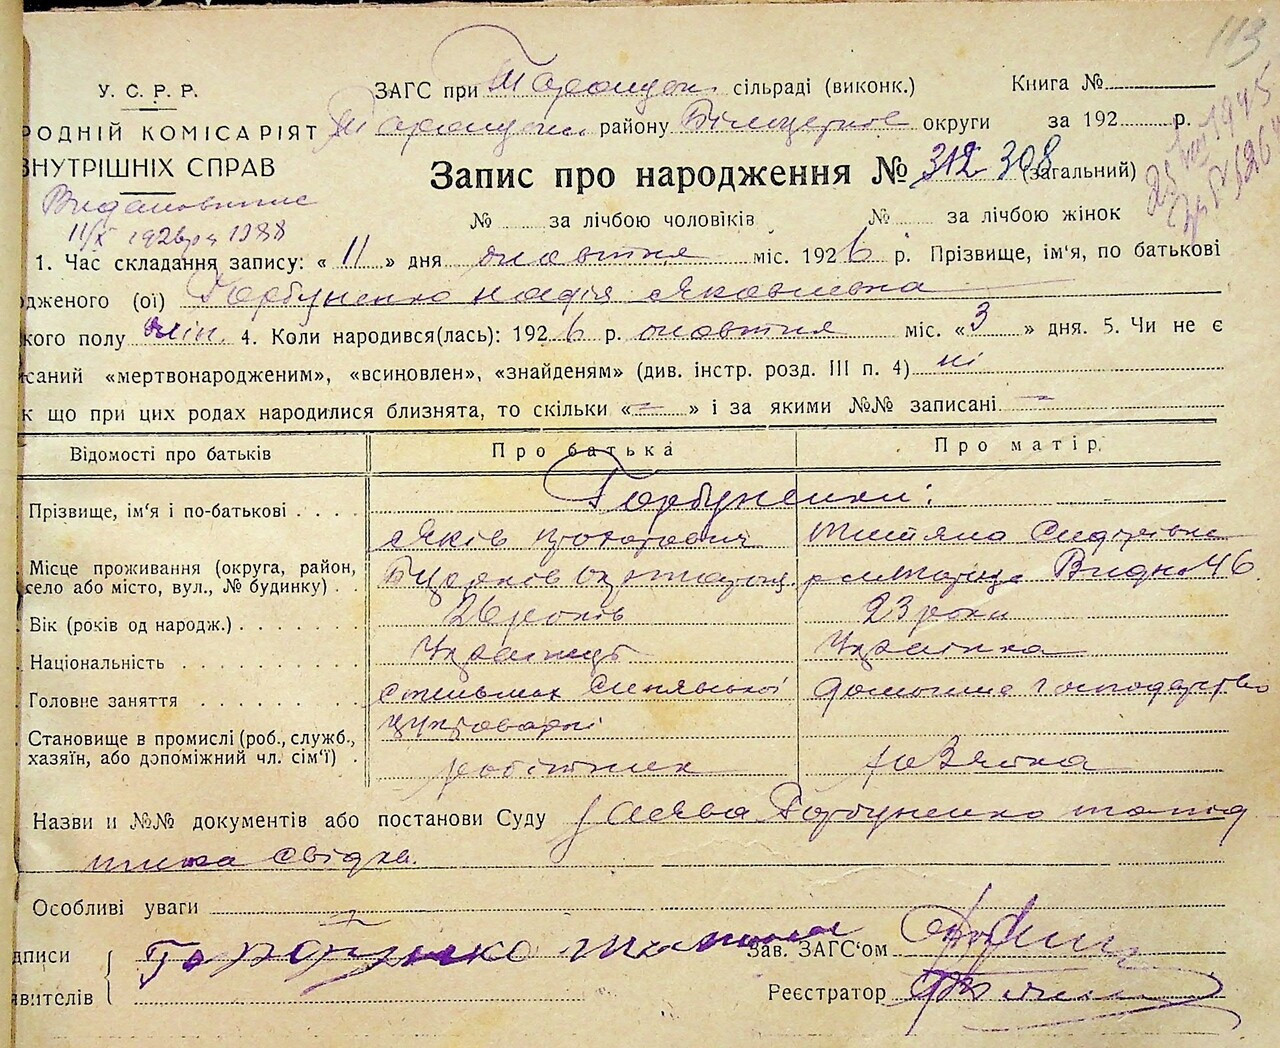 113
У. С. Р. Р.
ЗАГС при Таращан. сільраді (виконк.)
Книга №
РОДНІЙ КОМІСАРІЯТ
Таращан. району Білоцерків. округи за 192 р.
ВНУТРІШНІХ СПРАВ
Запис про народження № 312 308 (загальний)
11/X 1926 р. 1988
№ за лічбою чоловіків № за лічбою жінок
1. Час складання запису: « 11 » дня жовтня міс. 1926 р. Прізвище, ім'я, по батькові
одженого (ої) Горбуненко Надія Яковлевна
кого полу жін. 4. Коли народився(лась): 1926 р. жовтня міс. « 3 » дня. 5. Чи не є
исаний «мертвонародженим», «всиновлен», «знайденям» (див. інстр. розд. III п. 4) ні
к що при цих родах народилися близнята, то скільки « — » і за якими №№ записані —
Відомості про батьків Про батька Про матір.
Прізвище, ім'я і по-батькові Горбуненки:
Яків Тетяна Сидорівна
Місце проживання (округа, район,
село або місто, вул., № будинку) № 46
Вік (років од народж.) 26 років 23 роки
Національність Українець Українка
Головне заняття стельмах Синявської домашнє господарство
цукроварні
Становище в промислі (роб., служб.,
хазяїн, або допоміжний чл. сім'ї) робітник хазяйка
Назви и №№ документів або постанови Суду Заява Горбуненко та під
писка свідка.
Особливі уваги
дписи Горбуненко Зав. ЗАГС'ом
явителів Реєстратор